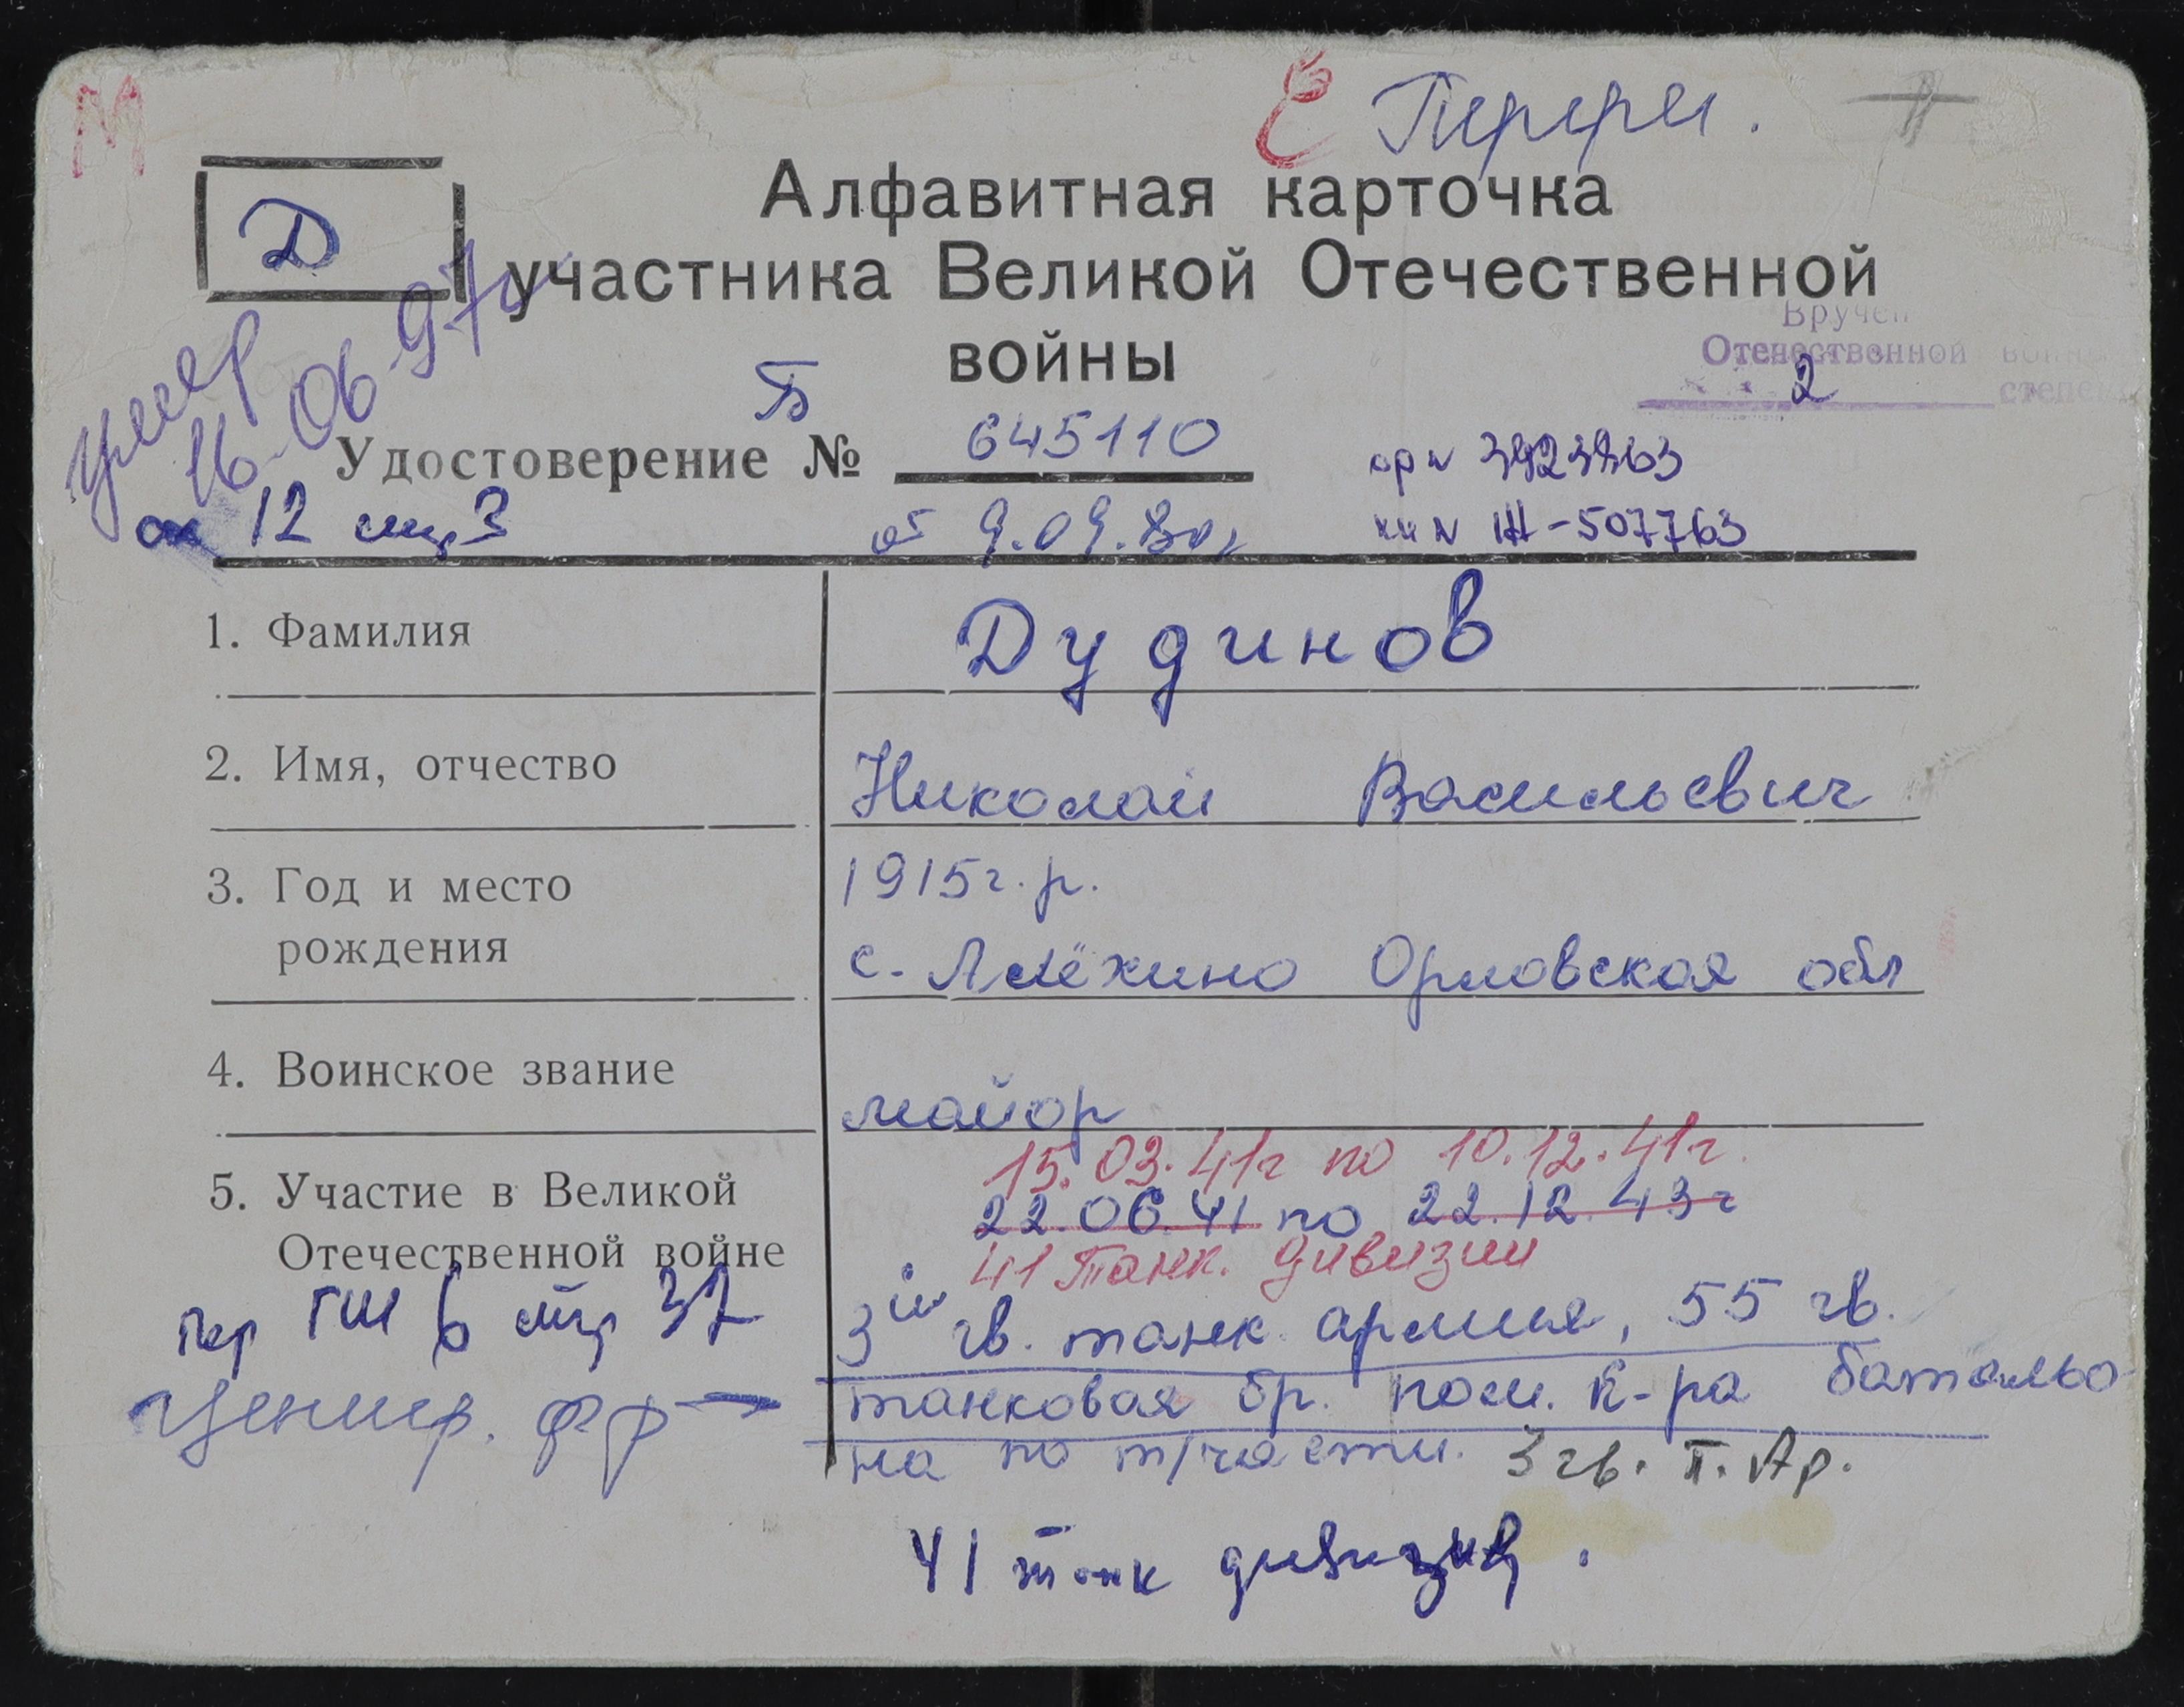 М
Ё Перерег.
Д
Алфавитная карточка
участника Великой Отечественной
войны
умер
16.06.97г
Вручен
Отечественной войны
2 степени
Б
Удостоверение № 645110
орн 3923863
от 9.09.80г
12 стр 3
кн N Ж-507763
1. Фамилия
Дудинов
2. Имя, отчество
Николай Васильевич
3. Год и место
рождения
1915г.р.
с. Алёхино Орловская обл
4. Воинское звание
майор
5. Участие в Великой
Отечественной войне
15.03.41г по 10.12.41г.
22.06.41 по 22.12.43г
41 Танк. дивизии
пер ГШ 6 стр 37
Центр. фр
3ий гв. танк. армия, 55 гв.
танковая бр. пом. к-ра батальо
на по т/части. 3 гв. т. Ар.
41 танк дивизия.